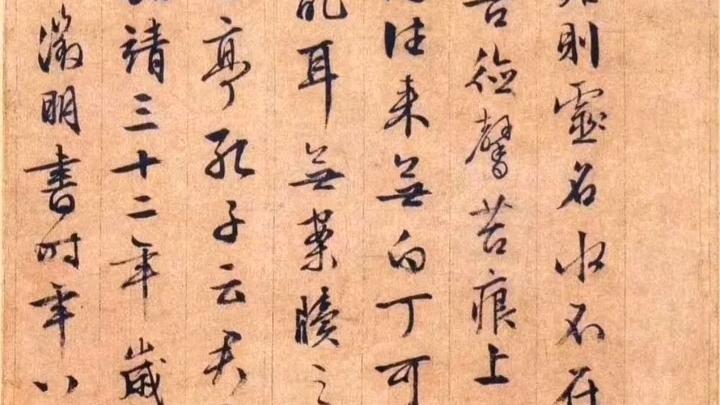 則靈名水不在
吾德馨苔痕上
往来無白丁可
亂耳無案牘之
亭孔子云君
靖三十二年歲
徵明書時年八